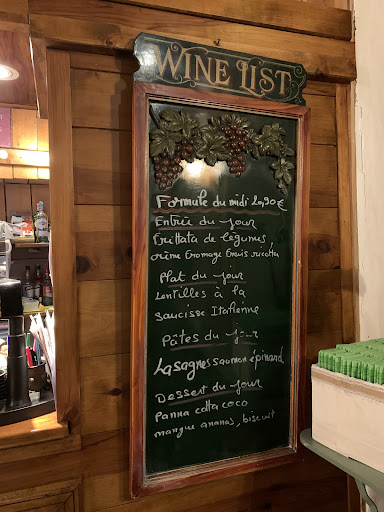 WINE LIST
Formule du midi 20,90€
Entrée du jour
Frittata de légumes
crème fromage frais ricotta
Plat du jour
Lentilles à la
saucisse Italienne
Pâtes du jour
Lasagnes saumon épinard
Dessert du jour
Panna cotta coco
mangue ananas, biscuit